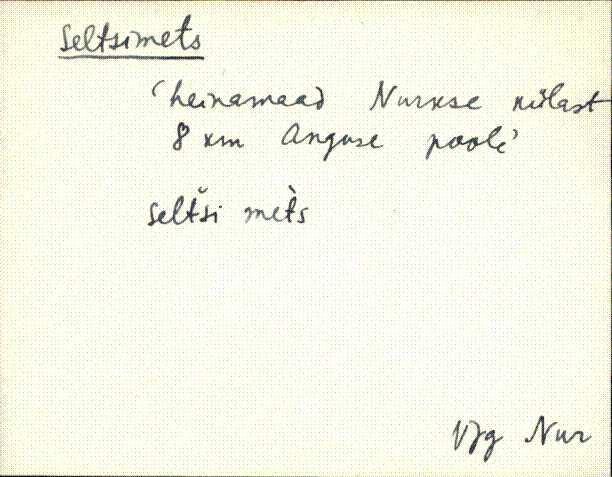 Seltsimets
'heinamaad Nurkse külast
8 km Anguse poole'
seltši mèts
Vig Nur